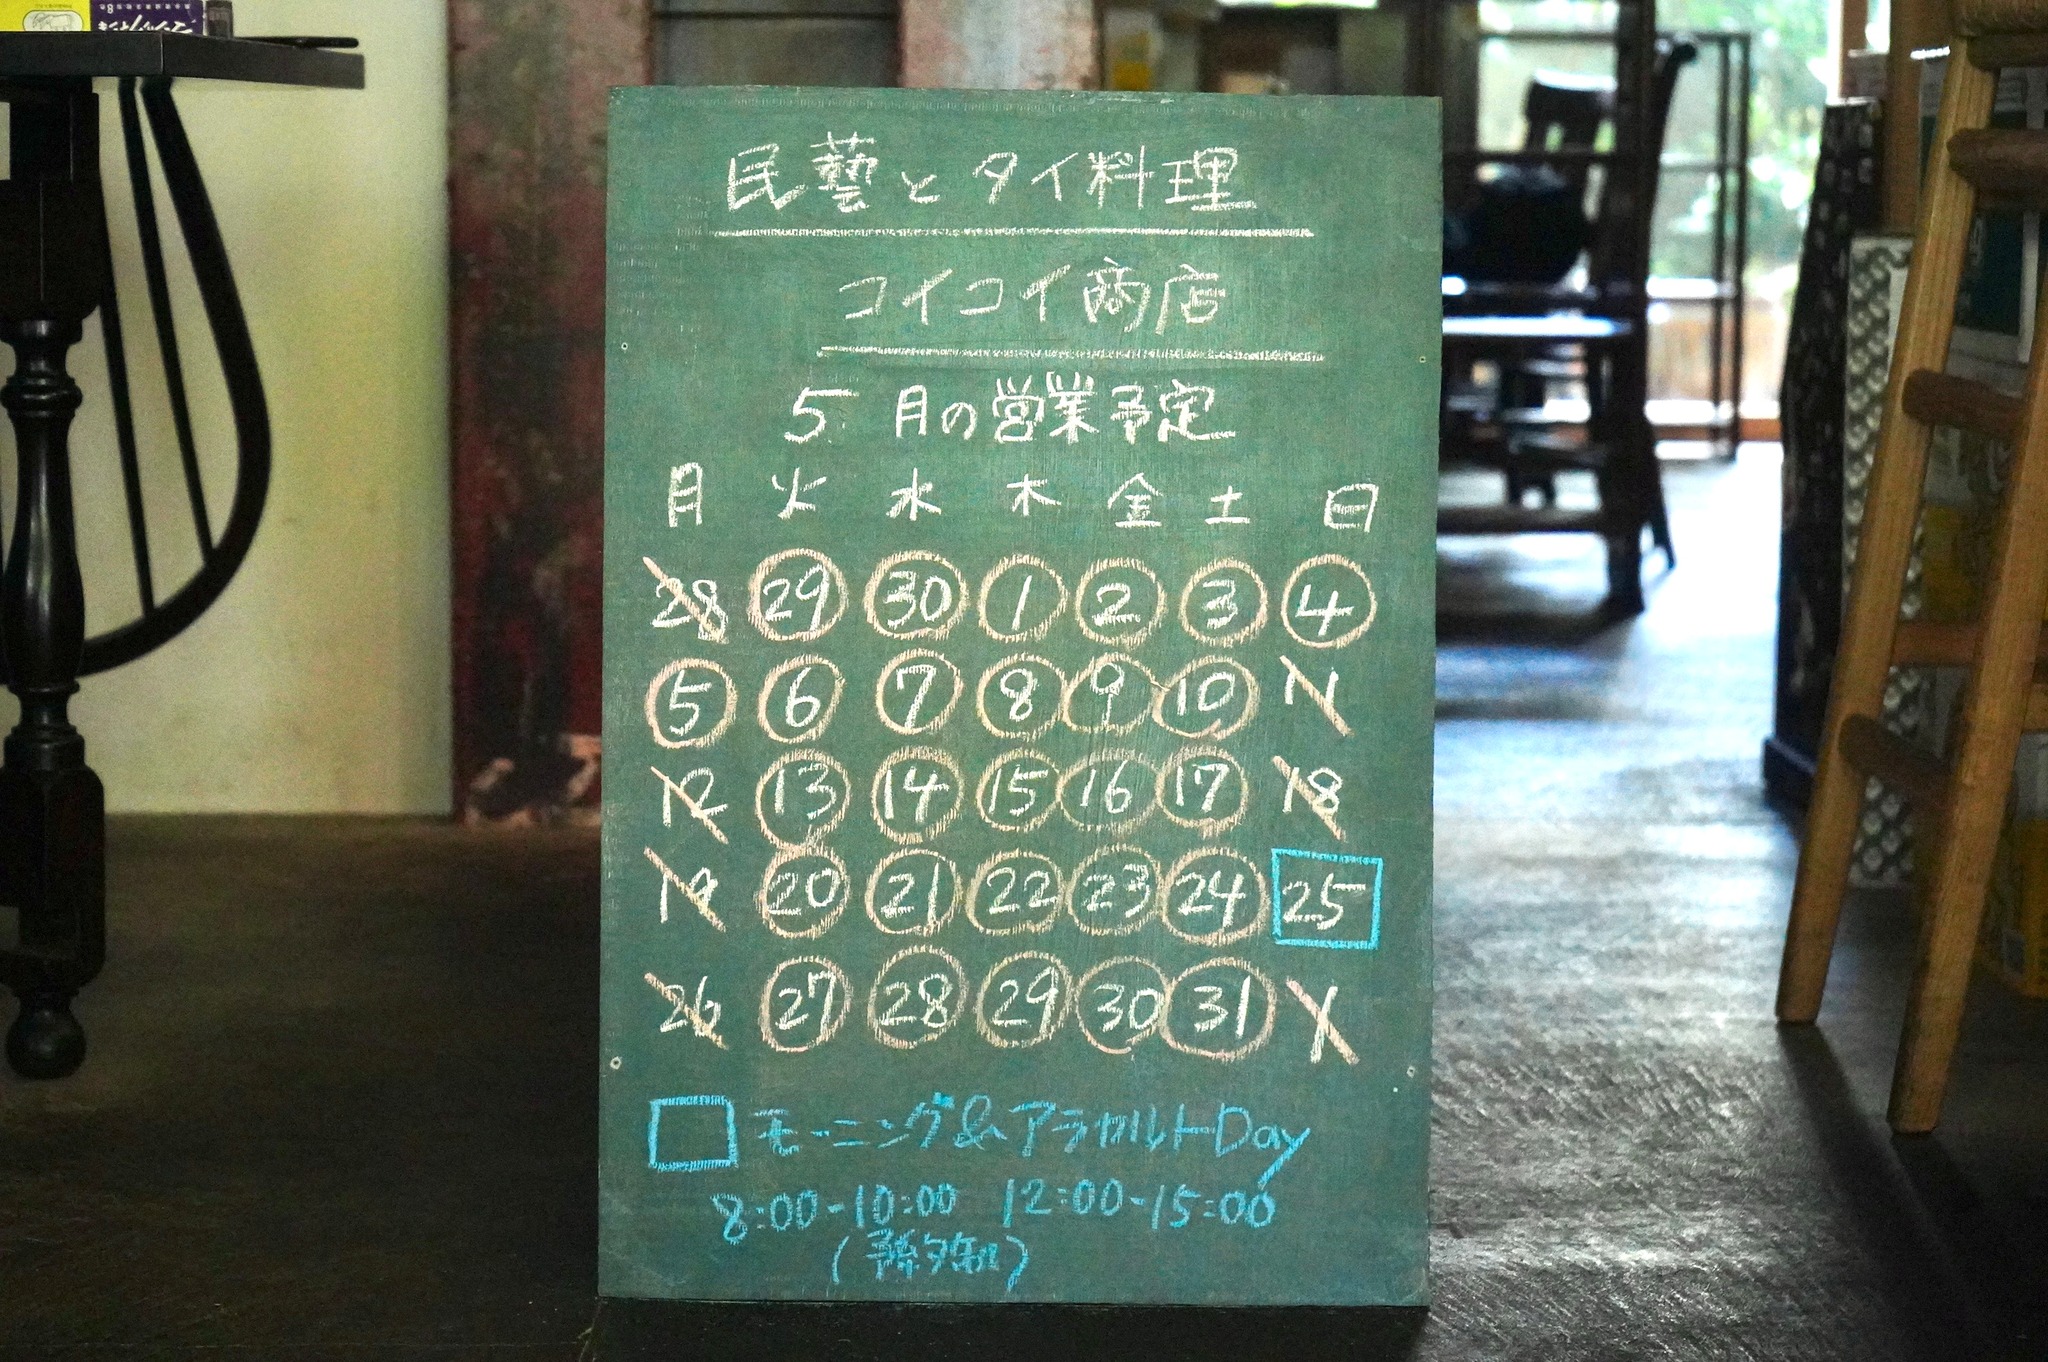 民藝とタイ料理
コイコイ商店
5月の営業予定
月 火 水 木 金 土 日
28 29 30 1 2 3 4
5 6 7 8 9 10 11
12 13 14 15 16 17 18
19 20 21 22 23 24 25
26 27 28 29 30 31 1
モーニング&アラカルトDay
8:00-10:00 12:00-15:00